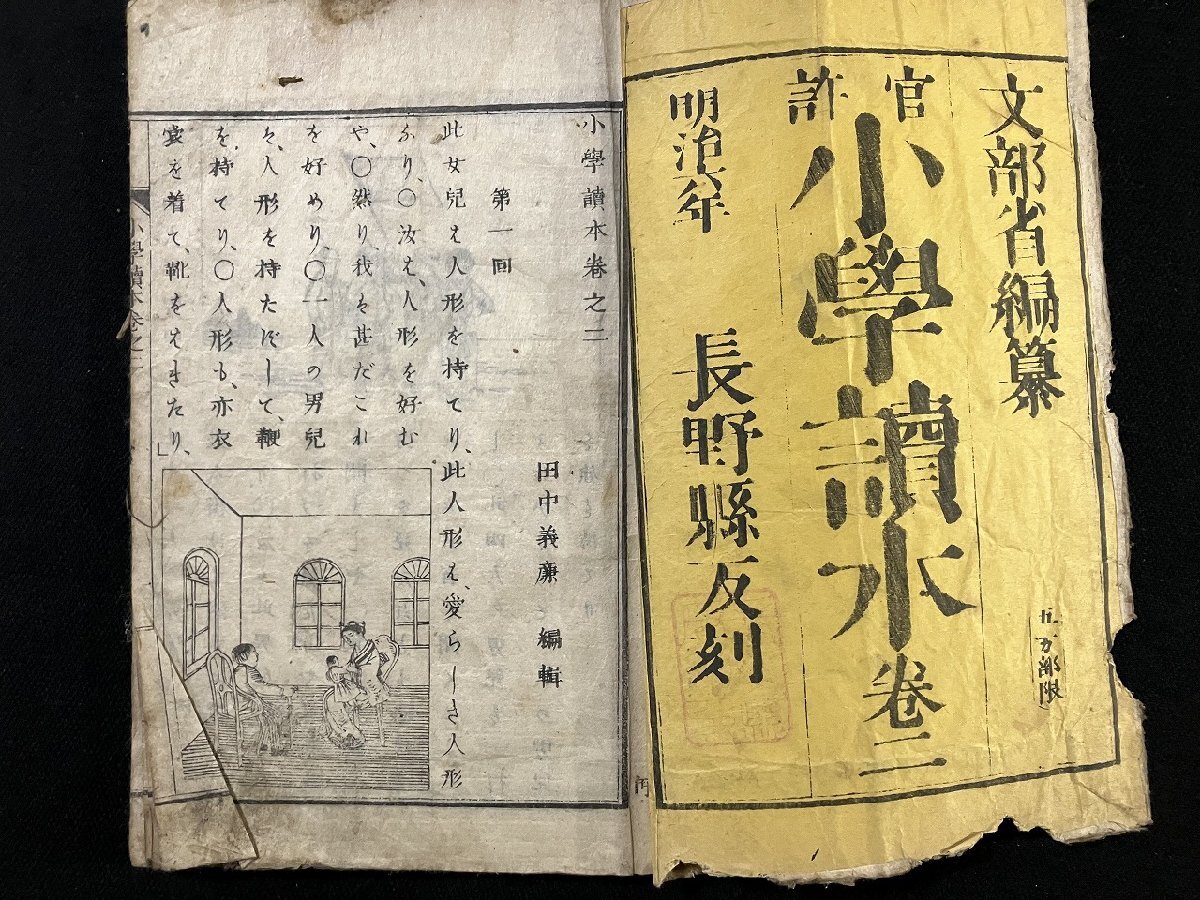 文部省編纂
五万部限
官許
小學讀本卷二
明治六年
長野縣反刻
小學讀本卷之二
田中義廉 編輯
第一回
此女兒は人形を持てり、此人形は、愛らしき人形
なり、〇汝は、人形を好む
や、〇然り、我は甚だこれ
を好めり、〇一人の男兒
は、人形を持たずして、鞭
を、持てり、〇人形も、亦衣
裳を着て、靴をはきたり、」
小學讀本卷之二